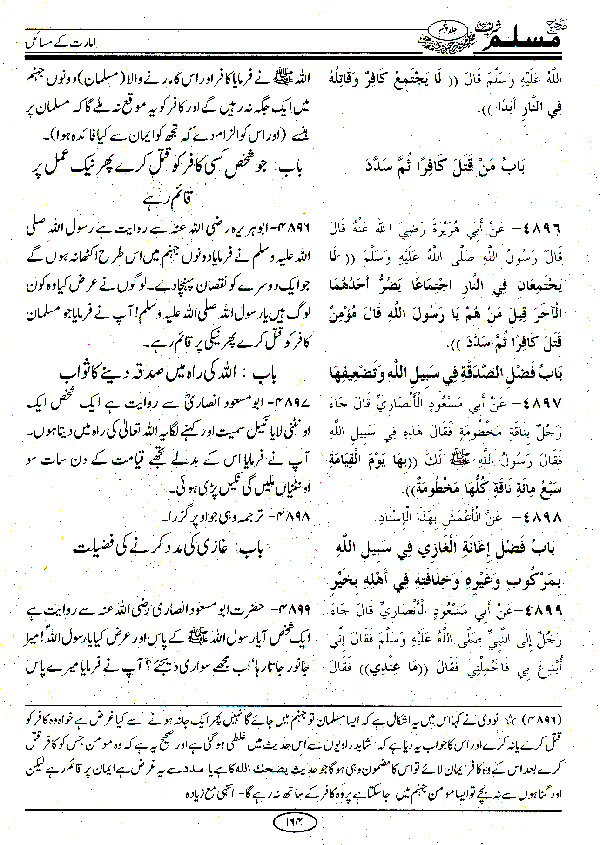 مسلم
جلد پنجم
امارت کے مسائل
اللَّهُ عَلَيْهِ وَسَلَّمَ قَالَ (( لَا يَجْتَمِعُ كَافِرٌ وَقَاتِلُهُ
فِي النَّارِ أَبَدًا )).
بَابُ مَنْ قَتَلَ كَافِرًا ثُمَّ سَدَّدَ
٤٨٩٦- عَنْ أَبِي هُرَيْرَةَ رَضِيَ اللَّهُ عَنْهُ قَالَ
قَالَ رَسُولُ اللَّهِ صَلَّى اللَّهُ عَلَيْهِ وَسَلَّمَ (( لَا
يَجْتَمِعَانِ فِي النَّارِ اجْتِمَاعًا يَضُرُّ أَحَدُهُمَا
الْآخَرَ قِيلَ مَنْ هُمْ يَا رَسُولَ اللَّهِ قَالَ مُؤْمِنٌ
قَتَلَ كَافِرًا ثُمَّ سَدَّدَ )).
بَابُ فَضْلِ الصَّدَقَةِ فِي سَبِيلِ اللَّهِ وَتَضْعِيفِهَا
٤٨٩٧- عَنْ أَبِي مَسْعُودٍ الْأَنْصَارِيِّ قَالَ جَاءَ
رَجُلٌ بِنَاقَةٍ مَخْطُومَةٍ فَقَالَ هَذِهِ فِي سَبِيلِ اللَّهِ
فَقَالَ رَسُولُ اللَّهِ ﷺ لَكَ ((بِهَا يَوْمَ الْقِيَامَةِ
سَبْعُ مِائَةِ نَاقَةٍ كُلُّهَا مَخْطُومَةٌ)).
٤٨٩٨- عَنْ الْأَعْمَشِ بِهَذَا الْإِسْنَادِ.
بَابُ فَضْلِ إِعَانَةِ الْغَازِي فِي سَبِيلِ اللَّهِ
بِمَرْكُوبٍ وَغَيْرِهِ وَخِلَافَتِهِ فِي أَهْلِهِ بِخَيْرٍ
٤٨٩٩- عَنْ أَبِي مَسْعُودٍ الْأَنْصَارِيِّ قَالَ جَاءَ
رَجُلٌ إِلَى النَّبِيِّ صَلَّى اللَّهُ عَلَيْهِ وَسَلَّمَ فَقَالَ إِنِّي
أُبْدِعَ بِي فَاحْمِلْنِي فَقَالَ (( مَا عِنْدِي )) فَقَالَ
اللہ ﷺ نے فرمایا کافر اور اس کا مارنے والا (مسلمان) دونوں جہنم
میں ایک جگہ نہ رہیں گے اور کافر کو یہ موقع نہ ملے گا کہ مسلمان پر
ہنسے (اور اس کو الزام دے کہ تجھ کو ایمان سے کیا فائدہ ہوا)۔
باب: جو شخص کسی کافر کو قتل کرے پھر نیک عمل پر
قائم رہے
۴۸۹۶- ابوہریرہ رضی اللہ عنہ سے روایت ہے رسول اللہ صلی
اللہ علیہ وسلم نے فرمایا دونوں جہنم میں اس طرح اکٹھا نہ ہوں گے
جو ایک دوسرے کو نقصان پہنچا دے۔ لوگوں نے عرض کیا وہ کون
لوگ ہیں یا رسول اللہ صلی اللہ علیہ وسلم! آپ نے فرمایا جو مسلمان
کافر کو قتل کرے پھر نیکی پر قائم رہے۔
باب: اللہ کی راہ میں صدقہ دینے کا ثواب
۴۸۹۷- ابو مسعود انصاریؓ سے روایت ہے ایک شخص ایک
اونٹنی لایا نکیل سمیت اور کہنے لگا یہ اللہ تعالیٰ کی راہ میں دیتا ہوں۔
آپ نے فرمایا اس کے بدلے تجھے قیامت کے دن سات سو
اونٹنیاں ملیں گی نکیل پڑی ہوئی۔
۴۸۹۸- ترجمہ وہی جو اوپر گزرا۔
باب: غازی کی مدد کرنے کی فضیلت
۴۸۹۹- حضرت ابو مسعود انصاری رضی اللہ عنہ سے روایت ہے
ایک شخص آیا رسول اللہ ﷺ کے پاس اور عرض کیا یا رسول اللہ! میرا
جانور جاتا رہا اب مجھے سواری دیجئے؟ آپ نے فرمایا میرے پاس
(۴۸۹۶) ☆ نووی نے کہا اس میں یہ اشکال ہے کہ ایسا مسلمان تو جہنم میں جائے گا نہیں پھر ایک جا نہ ہونے سے کیا غرض ہے خواہ وہ کافر کو
قتل کرے یا نہ کرے اور اس کا جواب یہ دیا ہے کہ شاید راویوں سے اس حدیث میں غلطی ہو گئی ہے اور صحیح یہ ہے کہ وہ مومن جس کو کافر قتل
کرے بعد اس کے وہ کافر ایمان لائے تو اس کا مضمون وہی ہو گا جو حدیث یضحك اللہ کا ہے یا سدد سے یہ غرض ہے ایمان پر قائم رہے لیکن
اور گناہوں سے نہ بچے تو ایسا مومن جہنم میں جا سکتا ہے پر وہ کافر کے ساتھ نہ رہے گا۔ انتہی مع زیادہ
۱۶۴